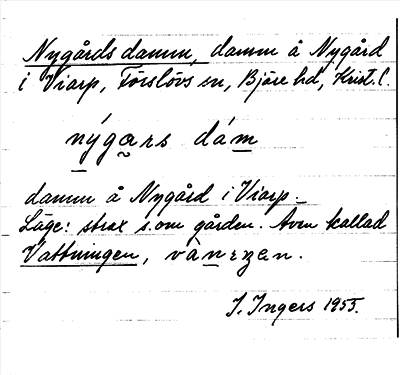 Nygårds damm, damm å Nygård
i Viarp, Förslövs sn, Bjäre hd, Krist. l.
nýgars dám
damm å Nygård i Viarp.
Läge: strax s. om gården. Även kallad
Vattningen, vànıŋen.
I. Ingers 1955.